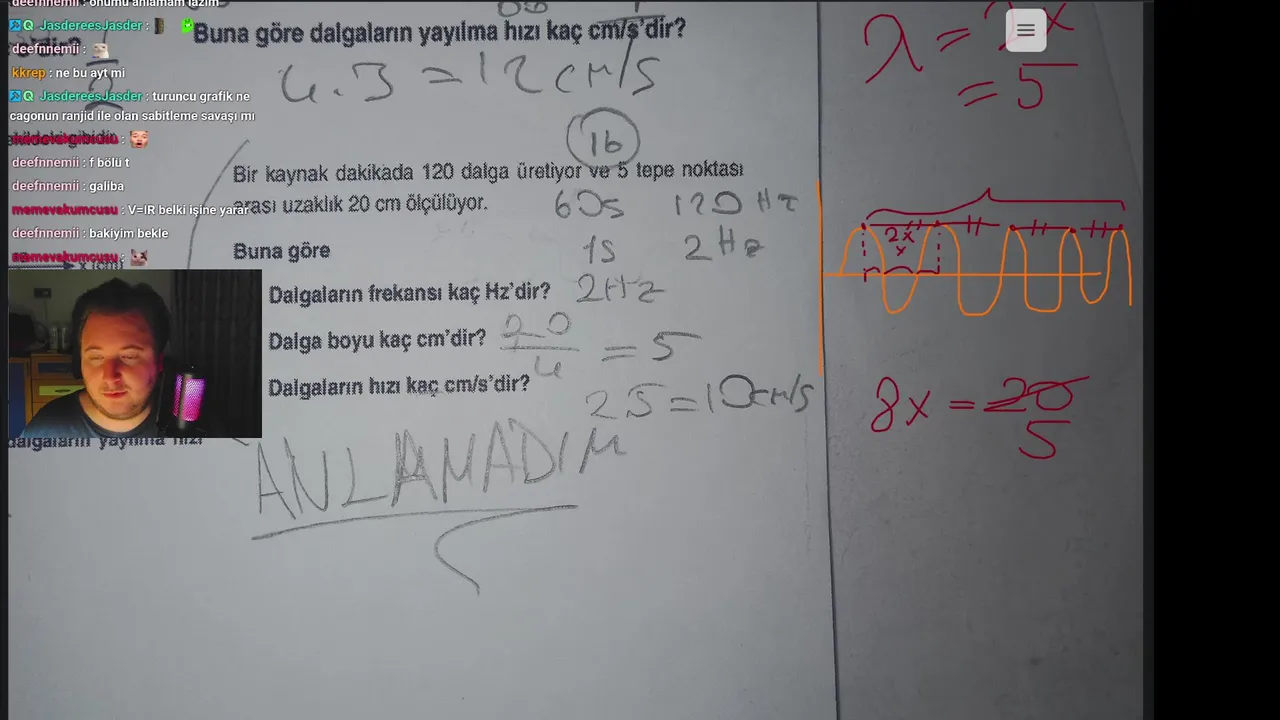 onumu anlamam lazım
JasdereesJasder :
deefnnemii :
kkrep : ne bu ayt mi
JasdereesJasder : turuncu grafik ne
cagonun ranjid ile olan sabitleme savaşı mı
memevakumcusu :
deefnnemii : f bölü t
deefnnemii : galiba
memevakumcusu : V=IR belki işine yarar
deefnnemii : bakiyim bekle
memevakumcusu :
dalgaların yayılma hızı
Buna göre dalgaların yayılma hızı kaç cm/s'dir?
4.3 = 12 cm/s
16
Bir kaynak dakikada 120 dalga üretiyor ve 5 tepe noktası
arası uzaklık 20 cm ölçülüyor.
60s 120 Hz
Buna göre
1s 2 Hz
Dalgaların frekansı kaç Hz'dir? 2Hz
Dalga boyu kaç cm'dir? 20/4 = 5
Dalgaların hızı kaç cm/s'dir?
2.5 = 10 cm/s
ANLAMADIM
λ = 2x
= 5
2x
x
8x = 20
5